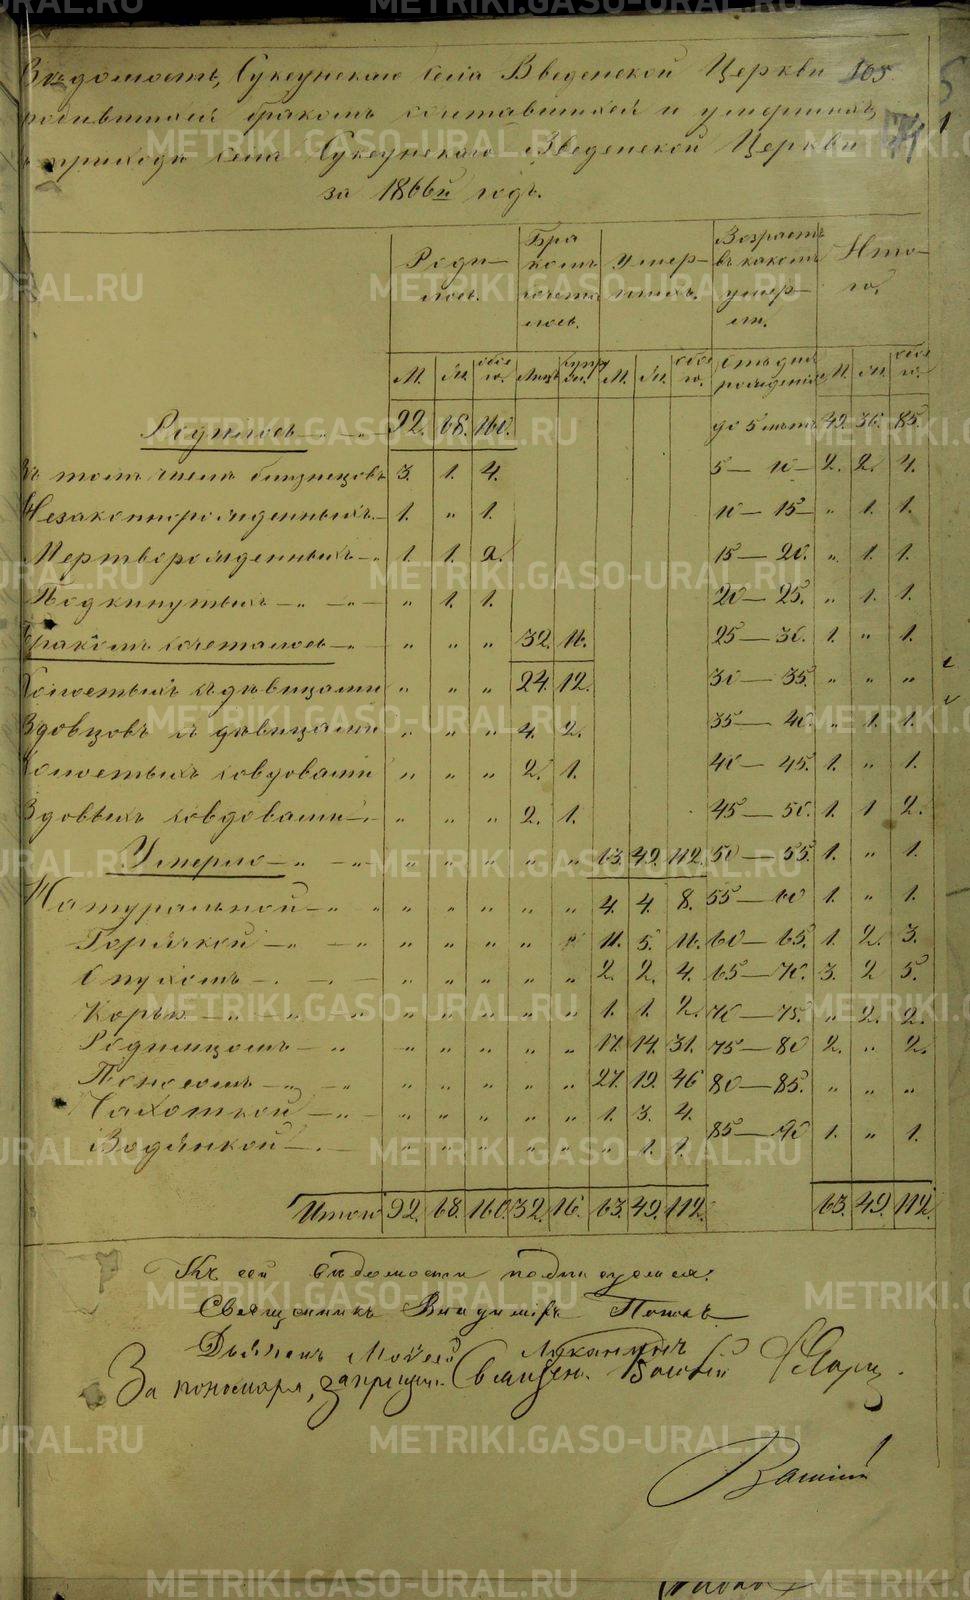 Вѣдомость, Суксунскаго села Введенской Церкви 105
родившихся бракомъ сочетавшихся и умершихъ
въ приходѣ села Суксунскаго Введенской Церкви
за 1866й годъ.
Роди- лось. Бра комъ сочета лось. Умер- шихъ. Возрастъ въ какомъ умер- ли. Ито- го.
М. Ж. обое го. Лицъ супру М. Ж. обое го. отъ дня рожденія М. Ж. обое го.
Родилось 92. 68. 160. до 5 лѣтъ 49. 36. 85.
Въ томъ числѣ близнецовъ 3. 1. 4. 5 — 10 2. 2. 4.
Незаконнорожденныхъ 1. „ 1. 10 — 15 „ 1. 1.
Мертворожденныхъ 1. 1. 2. 15 — 20. „ 1. 1.
Подкинутыхъ „ 1. 1. 20 — 25. „ 1. 1.
Бракомъ сочеталось „ „ „ 32. 16. 25 — 30. 1. „ 1.
Холостыхъ съ дѣвицами „ „ „ 24. 12. 30 — 35. „ „ „
Вдовцовъ съ дѣвицами „ „ „ 4. 2. 35 — 40. „ 1. 1.
Холостыхъ со вдовами „ „ „ 2. 1. 40 — 45. 1. „ 1.
Вдовыхъ со вдовами „ „ „ 2. 1. 45 — 50. 1. 1 2.
Умерло „ „ „ „ „ 63. 49. 112. 50 — 55. 1. „ 1.
Натуральной „ „ „ „ „ 4. 4. 8. 55 — 60 1. „ 1.
Горячкой „ „ „ „ „ 11. 5. 16. 60 — 65. 1. 2. 3.
Опухомъ „ „ „ „ „ 2. 2. 4. 65 — 70. 3. 2 5.
Корью „ „ „ „ „ 1. 1. 2. 70 — 75. „ 2. 2.
Родимцомъ „ „ „ „ „ 17. 14. 31. 75 — 80 2. „ 2.
Поносомъ „ „ „ „ „ 27. 19. 46 80 — 85. „ „ „
Чахоткой „ „ „ „ „ 1. 3. 4.
Водянкой „ „ „ „ „ „ 1. 1. 85 — 90 1. „ 1.
Итого 92. 68. 160. 32. 16. 63. 49. 112. 63. 49. 112.
Къ сей вѣдомости подписуемся:
Священникъ Владиміръ Поповъ
Дьяконъ Моѵсей Луканинъ
За пономаря, запрещен. Священ.
METRIKI.GASO-URAL.RU